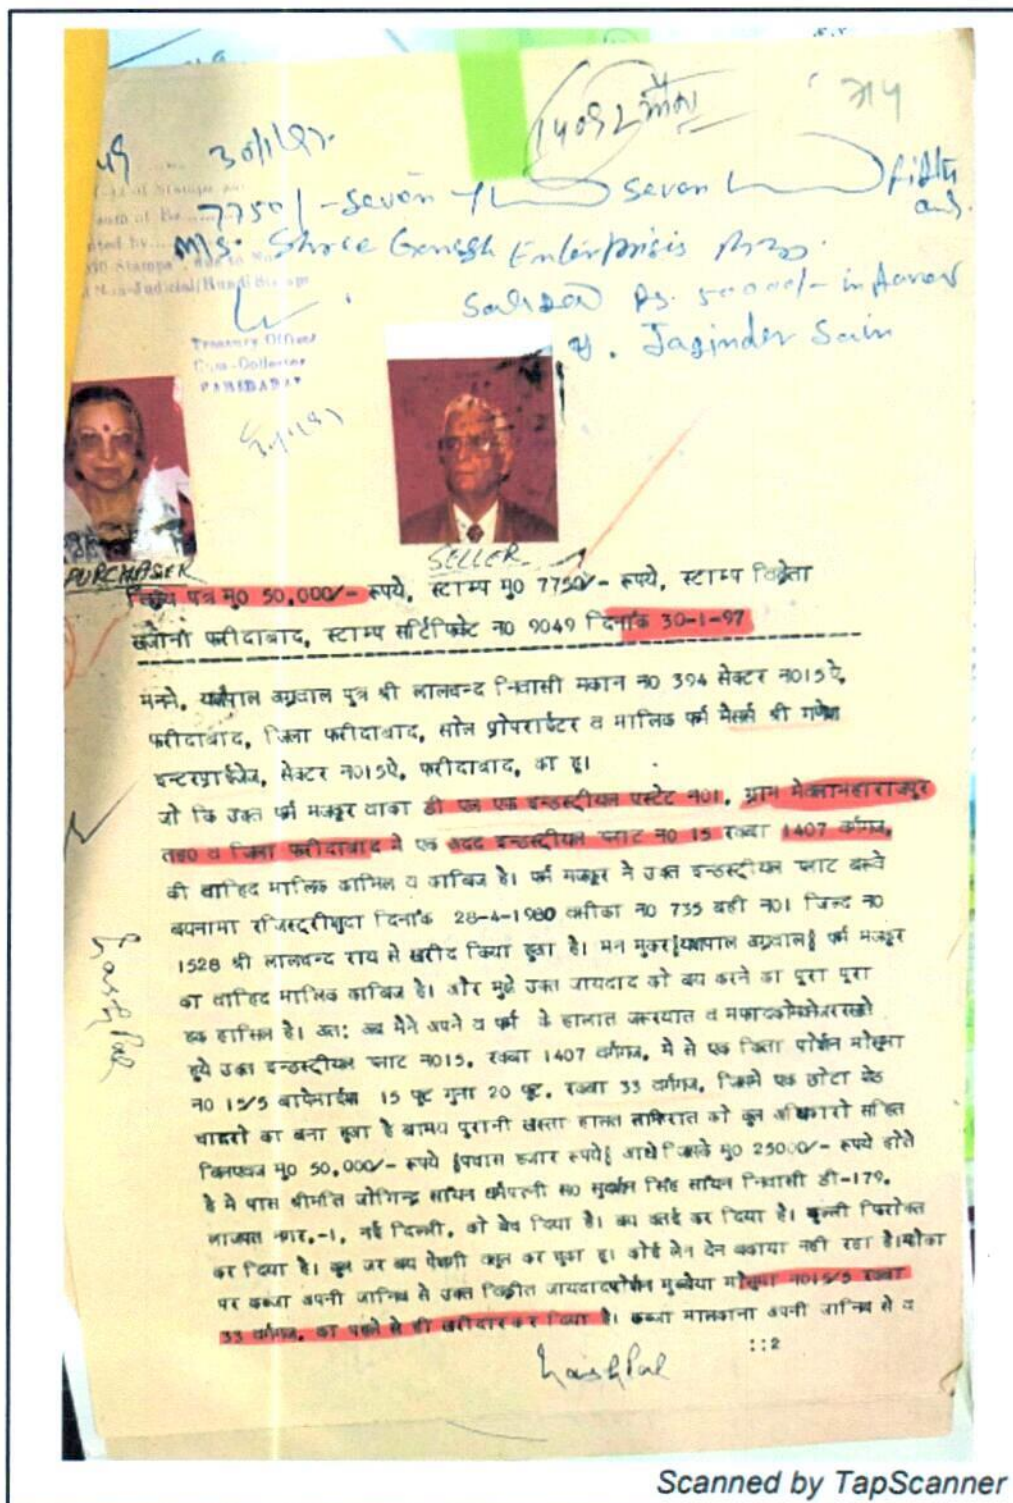 30/1/97.
7750/- Seven Seven fifty
M/S. Shree Ganesh Enterprisis
50000/- in favour
Jaginder Sain
Treasury Officer
Cum-Collector
FARIDABAD
PURCHASER
SELLER
विक्रय पत्र मु0 50,000/- रूपये, स्टाम्प मु0 7750/- रूपये, स्टाम्प विक्रेता
खजाना फरीदाबाद, स्टाम्प सर्टिफिकेट न0 9049 दिनांक 30-1-97
मनमे, यशपाल अग्रवाल पुत्र श्री लालचन्द निवासी मकान न0 394 सेक्टर न015ऐ,
फरीदाबाद, जिला फरीदाबाद, सोल प्रोपराईटर व मालिक फर्म मैसर्स श्री गणेश
इन्टरप्राईजेज, सेक्टर न015ऐ, फरीदाबाद, का हू।
जो कि उक्त फर्म मजकूर वाका डी एल एफ इन्डस्ट्रीयल एस्टेट न01, ग्राम मेवलामहाराजपुर
तह0 व जिला फरीदाबाद मे एक अदद इन्डस्ट्रीयल प्लाट न0 15 रकबा 1407 वर्गगज,
की वाहिद मालिक कामिल व काबिज है। फर्म मजकूर ने उक्त इन्डस्ट्रीयल प्लाट बरूवे
बयनामा रजिस्ट्रीशुदा दिनांक 28-4-1980 वसीका न0 735 बही न01 जिल्द न0
1528 श्री लालचन्द राय से खरीद किया हुआ है। मन मुकर यशपाल अग्रवाल फर्म मजकूर
का वाहिद मालिक काबिज है। और मुझे उक्त जायदाद को बय करने का पूरा पूरा
हक हासिल है। अत: अब मैने अपने व फर्म के हालात जरूरयात व
हुये उक्त इन्डस्ट्रीयल प्लाट न015, रकबा 1407 वर्गगज, मे से एक किता पोर्शन मौसूमा
न0 15/5 15 फुट गुना 20 फुट, रकबा 33 वर्गगज, जिसमे एक छोटा शेड
चादरो का बना हुआ है बामय पुरानी खस्ता हालत तामिरात को कुल अधिकारो सहित
बिलएवज मु0 50,000/- रूपये पचास हजार रूपये आधे जिसके मु0 25000/- रूपये होते
है मे पास श्रीमति जोगिन्द्र सायन धर्मपत्नी स0 सिंह सायन निवासी डी-179,
लाजपत नगर,-1, नई दिल्ली, को बेच दिया है। बय कतई कर दिया है।
कर दिया है। कुल जर बय पेशगी वसूल कर चुका हू। कोई लेन देन बकाया नही रहा है। मौका
पर कब्जा अपनी जानिब से उक्त विक्रीत जायदाद पोर्शन मुबैया मौसूमा न015/5 रकबा
33 वर्गगज, का पहले से ही खरीदार कर दिया है। कब्जा मालकाना अपनी जानिब से व
::2
Yashpal
Yashpal
Scanned by TapScanner